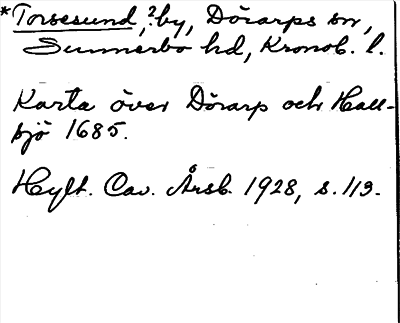 *Torsesund,?by, Dörarps sn,
Sunnerbo hd, Kronob. l.
Karta över Dörarp och Hall-
sjö 1685.
Hylt. Cav. Årsb. 1928, s. 113.